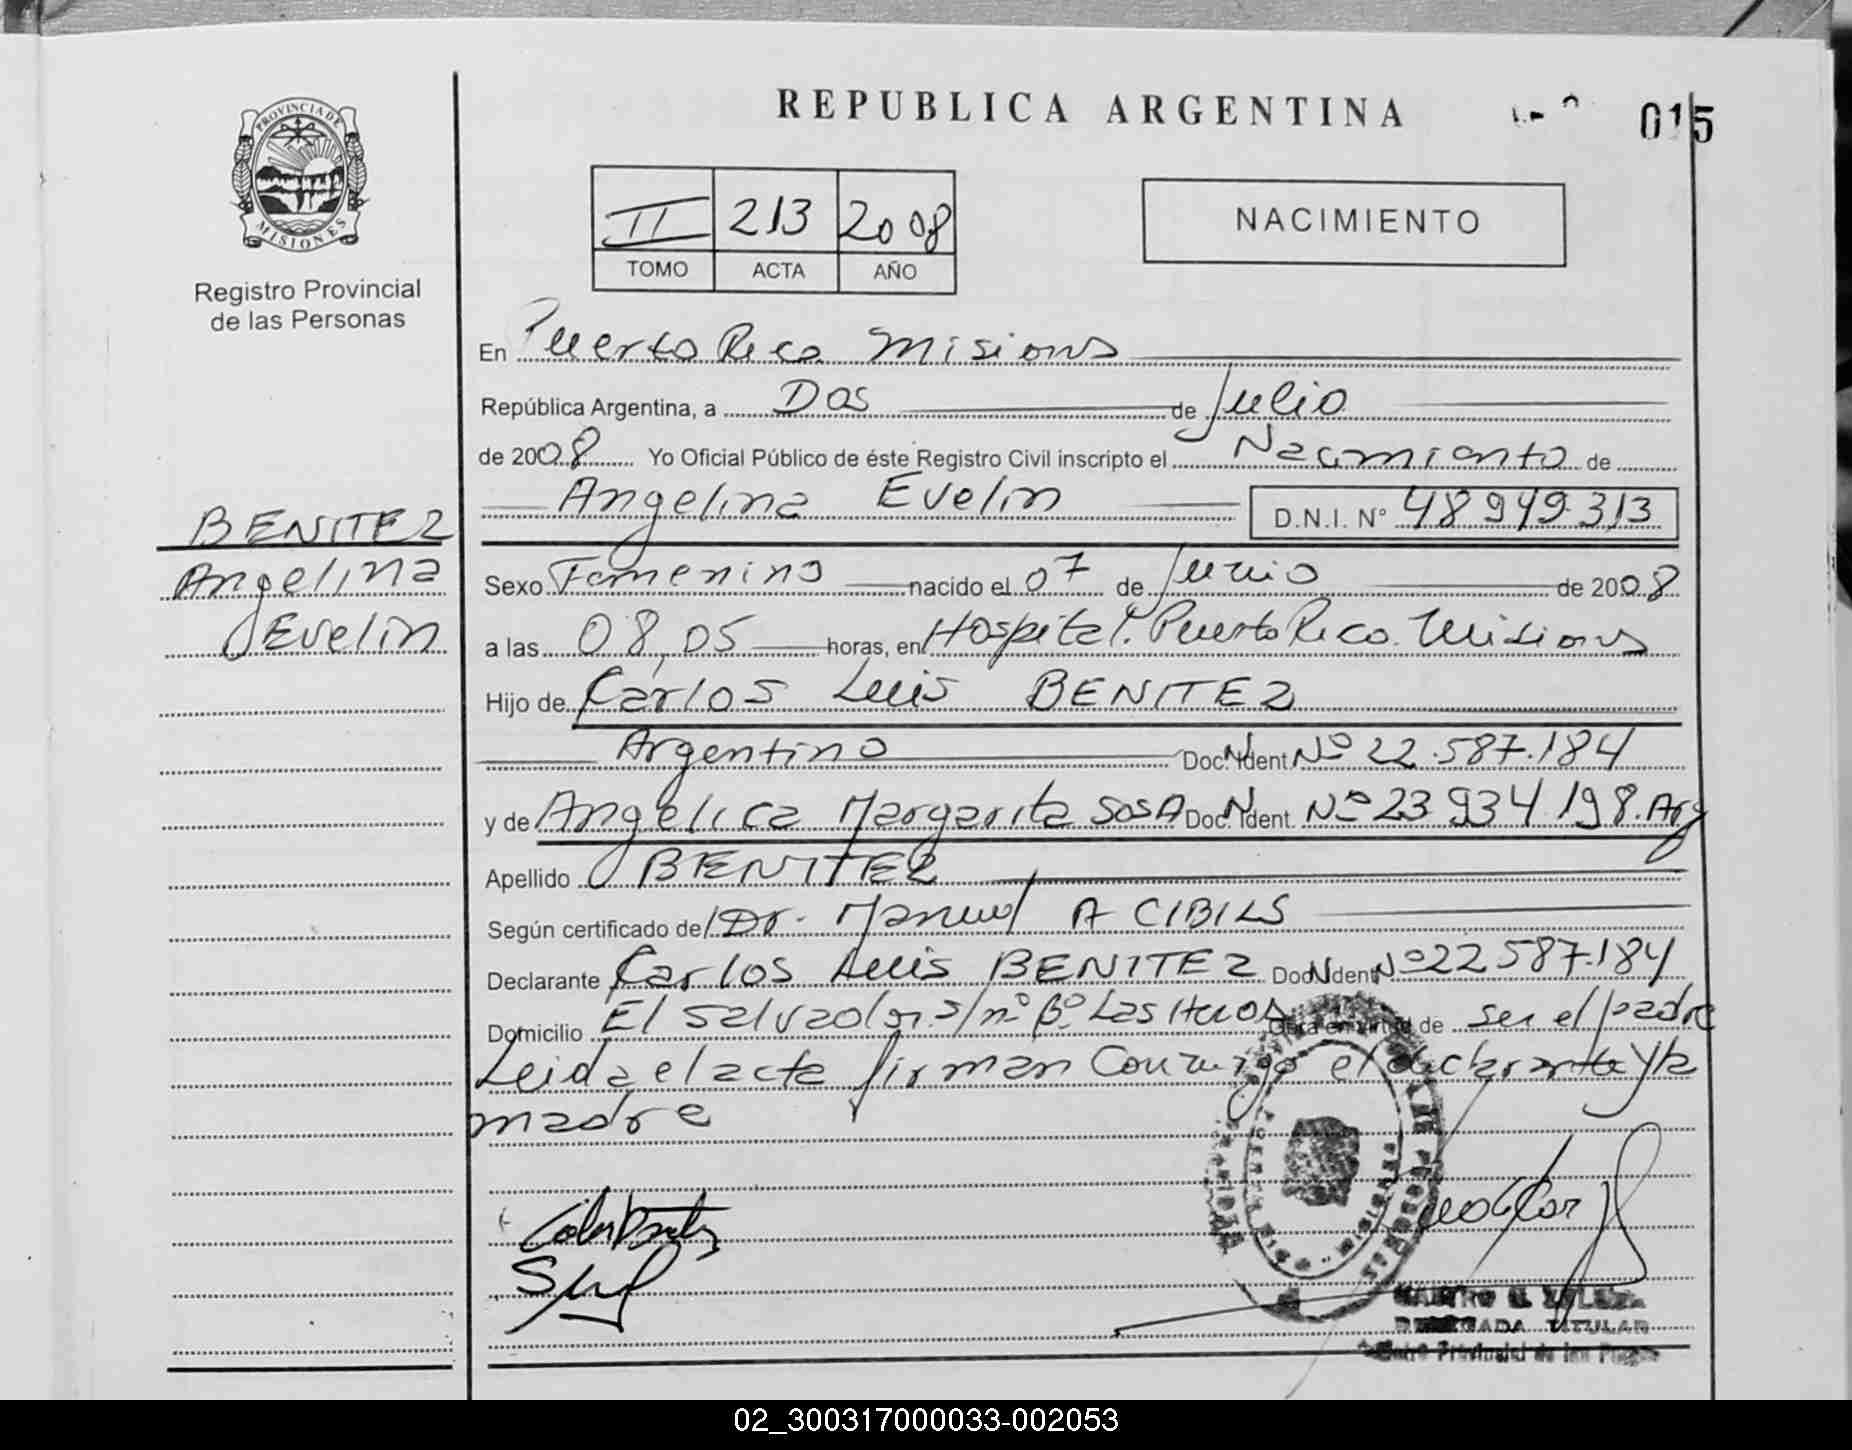 REPUBLICA ARGENTINA
015
PROVINCIA DE
MISIONES
Registro Provincial
de las Personas
II 213 2008
TOMO ACTA AÑO
NACIMIENTO
En Puerto Rico Misiones
República Argentina, a Dos de Julio
de 2008 Yo Oficial Público de éste Registro Civil inscripto el Nacimiento de
Angelina Evelin D.N.I. Nº 48949313
BENITEZ
Angelina
Evelin
Sexo Femenino nacido el 07 de Junio de 2008
a las 08,05 horas, en Hospital. Puerto Rico. Misiones
Hijo de Carlos Luis BENITEZ
Argentino Doc. Ident Nº 22.587.184
y de Angelica Margarita SOSA Doc. Ident. Nº 23 934 198. Arg
Apellido BENITEZ
Según certificado de Dr. Manuel A CIBILS
Declarante Carlos Luis BENITEZ Doc Ident Nº 22 587.184
Domicilio El Salvador s/nº Bº Las Obra en virtud de ser el padre
Leida el acta firman Conmigo el declarante y la
madre
DELEGADA TITULAR
Provincial de las
02_300317000033-002053